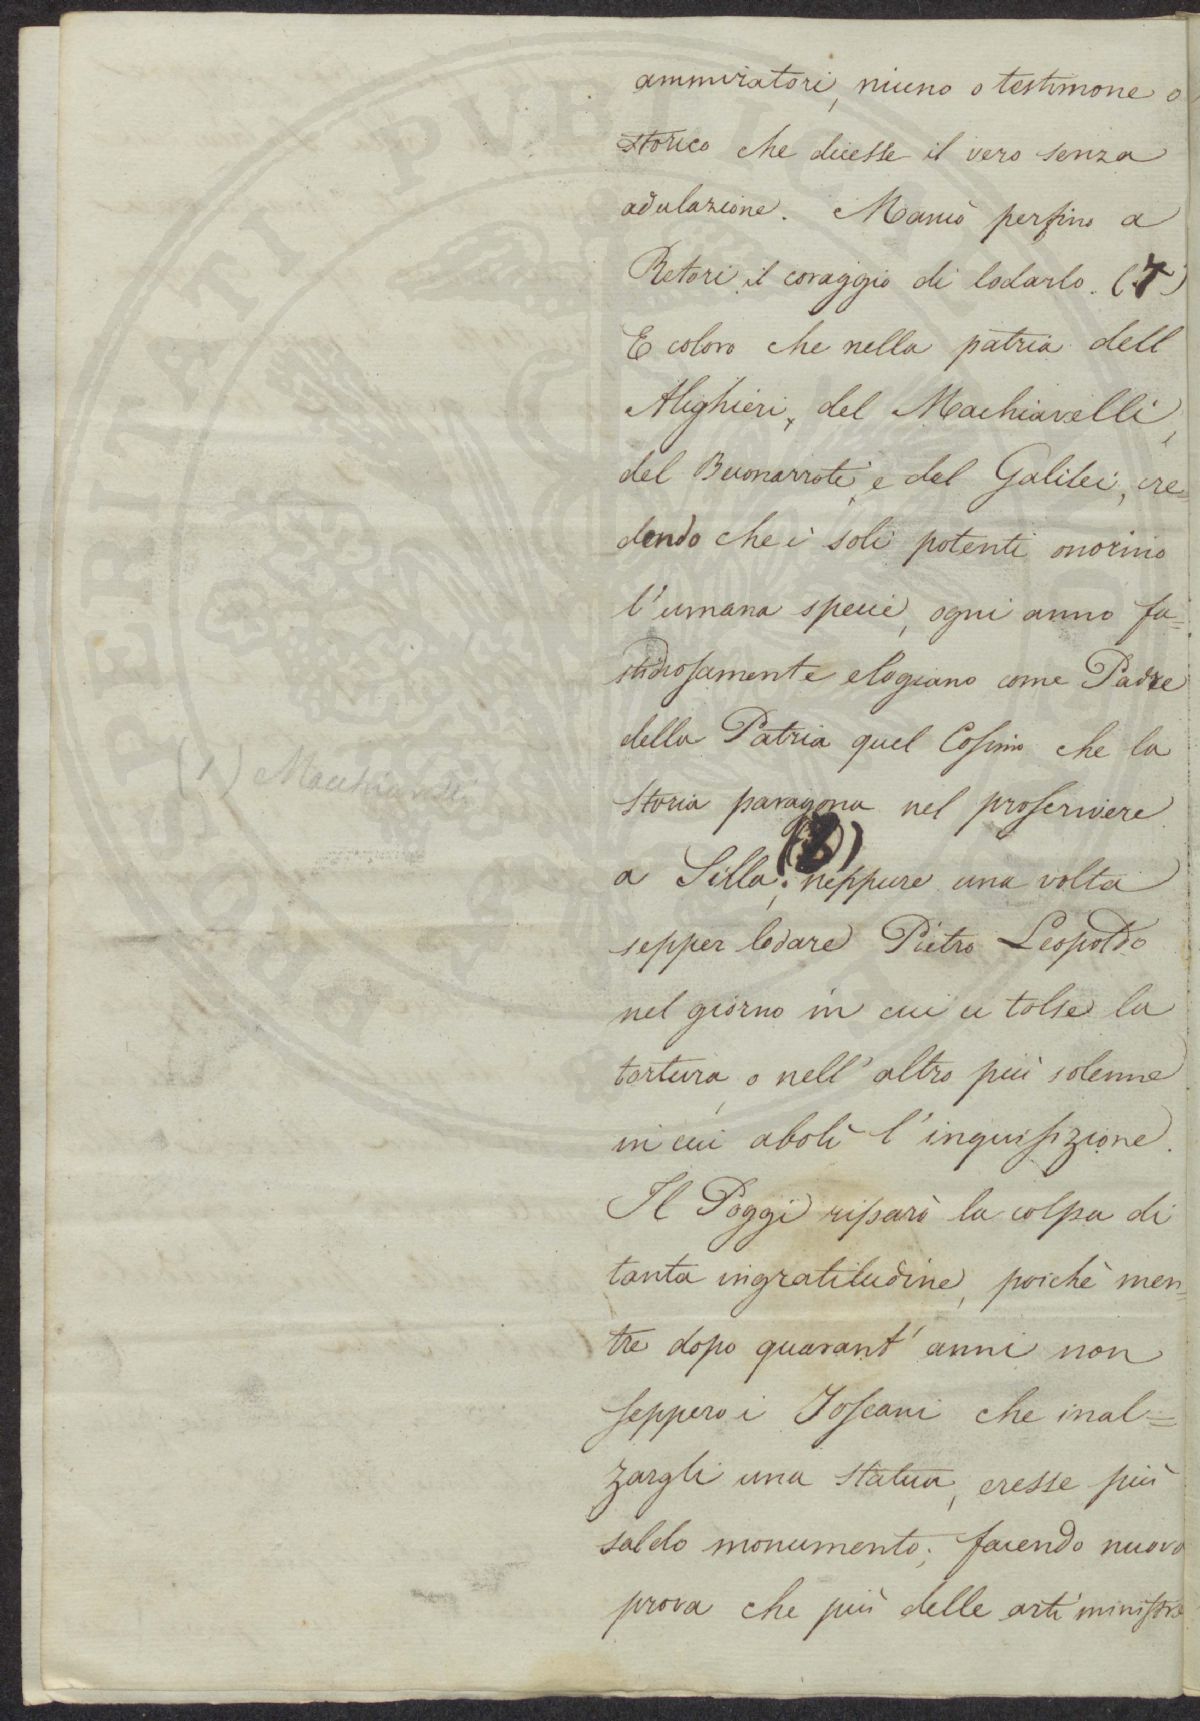 ammiratori, niuno o testimone o
storico che dicesse il vero senza
adulazione. Mancò perfino a
Retori il coraggio di lodarlo. (7)
E coloro che nella patria dell
Alighieri, del Machiavelli,
del Buonarroti, e del Galilei, cre=
dendo che i soli potenti onorino
l'umana specie, ogni anno fa=
stidiosamente elogiano come Padre
della Patria quel Cosimo che la
storia paragona nel proscrivere
(8)
a Silla; neppure una volta
sepper lodare Pietro Leopoldo
nel giorno in cui ci tolse la
tortura, o nell'altro più solenne
in cui abolì l'inquisizione.
Il Poggi riparò la colpa di
tanta ingratitudine, poichè men=
tre dopo quarant'anni non
seppero i Toscani che inal=
zargli una statua, eresse più
saldo monumento; facendo nuova
prova che più delle arti ministre
(1) Machiavelli